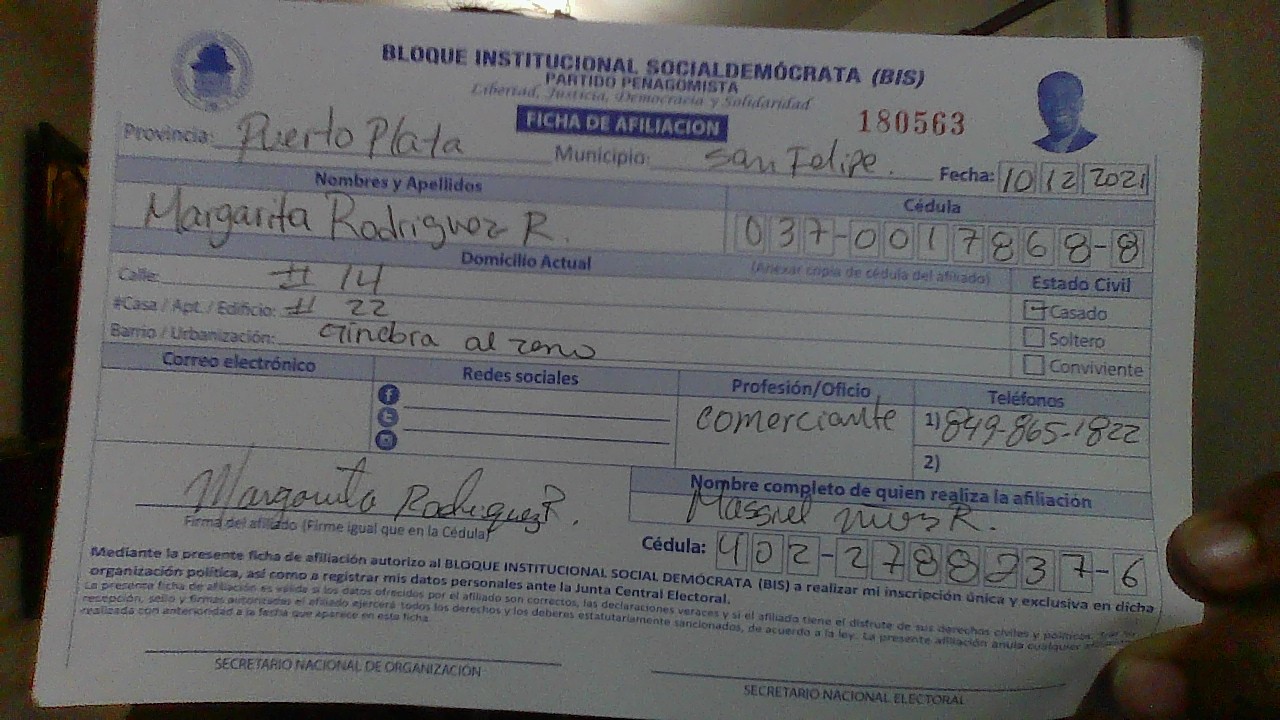 BLOQUE INSTITUCIONAL SOCIALDEMÓCRATA (BIS)
PARTIDO PEÑAGOMISTA
Libertad, Justicia, Democracia y Solidaridad
FICHA DE AFILIACIÓN
180563
Provincia: Puerto Plata Municipio: San Felipe. Fecha: 10 12 2021
Nombres y Apellidos Cédula
Margarita Rodriguez R. 037-0017868-8
Domicilio Actual (Anexar copia de cédula del afiliado) Estado Civil
Calle: # 14
Casado
#Casa / Apt. / Edificio: # 22
Soltero
Barrio / Urbanización: Ginebra al
Conviviente
Correo electrónico Redes sociales Profesión/Oficio Teléfonos
comerciante 1) 849-865-1822
2)
Margarita Rodriguez R.
Firma del afiliado (Firme igual que en la Cédula)
Nombre completo de quien realiza la afiliación
Massiel R.
Cédula: 402-2788237-6
Mediante la presente ficha de afiliación autorizo al BLOQUE INSTITUCIONAL SOCIAL DEMÓCRATA (BIS) a realizar mi inscripción única y exclusiva en dicha
organización política, así como a registrar mis datos personales ante la Junta Central Electoral.
La presente ficha de afiliación es valida si los datos ofrecidos por el afiliado son correctos, las declaraciones veraces y si el afiliado tiene el disfrute de sus derechos civiles y políticos.
recepción, sello y firmas autorizadas el afiliado ejercerá todos los derechos y los deberes estatutariamente sancionados, de acuerdo a la ley. La presente afiliación anula cualquier
realizada con anterioridad a la fecha que aparece en esta ficha.
SECRETARIO NACIONAL DE ORGANIZACIÓN
SECRETARIO NACIONAL ELECTORAL